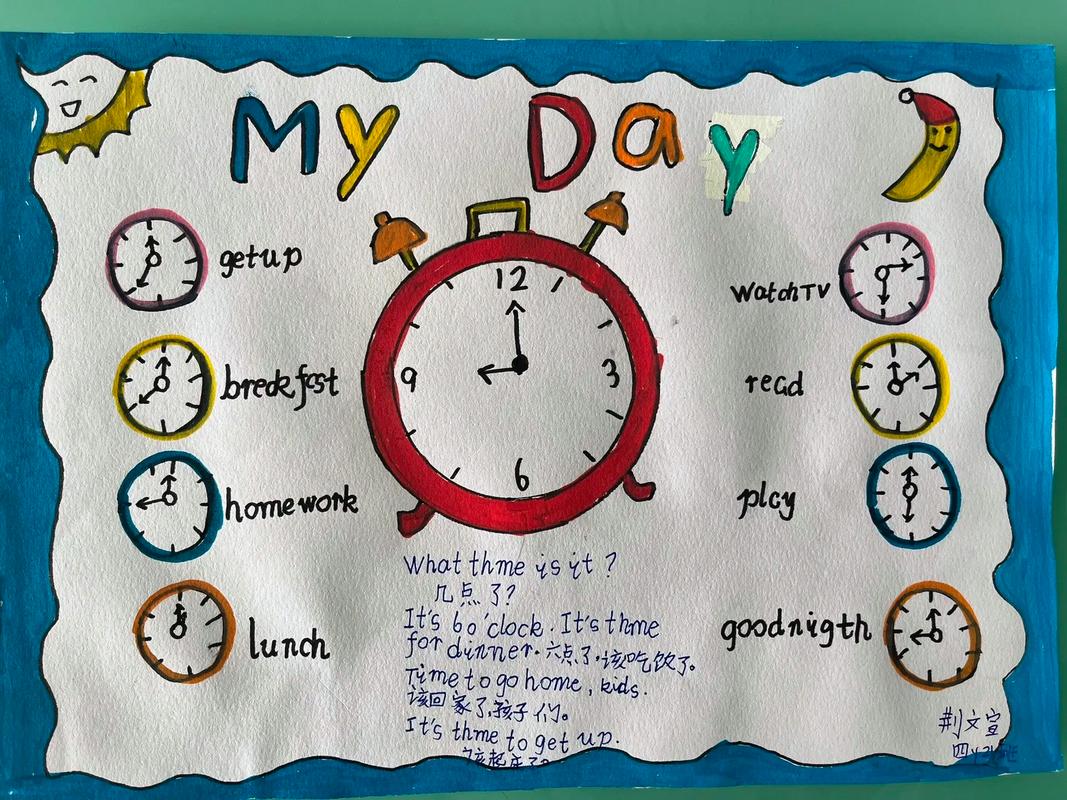 My Day
getup
breakfast
homework
lunch
12
9
3
6
watchTV
read
play
goodnigth
What thme is it ?
几点了?
It's 6 o'clock. It's thme
for dinner. 六点了.该吃饮了。
Time to go home, kids.
该回家了,孩子们。
It's thme to get up.
该起床了。
荆文宣